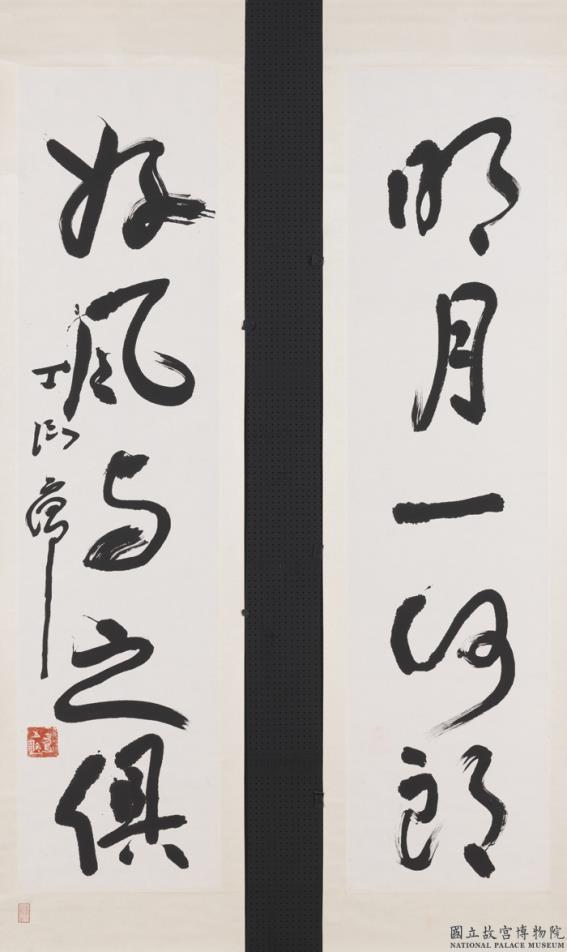 明月一何朗
好風与之俱
國立故宮博物院
NATIONAL PALACE MUSEUM